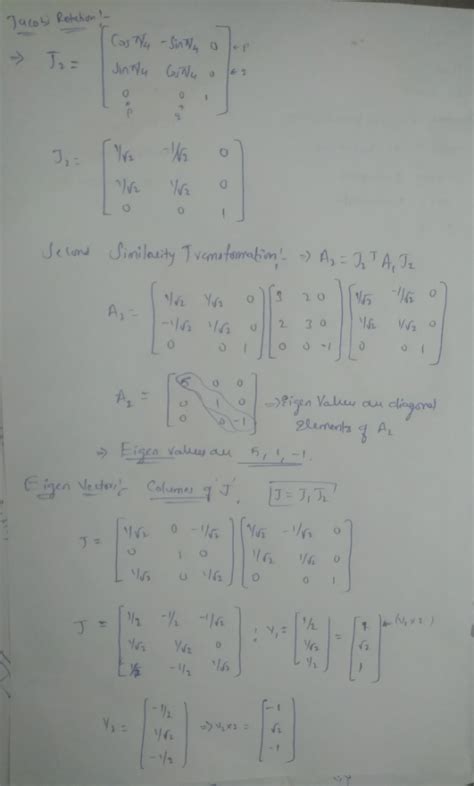 Jacobi Rotation:-
⇒ J₂ = [ Cos π/4 -Sin π/4 0 ] ←p
[ Sin π/4 Cos π/4 0 ]
[ 0 0 1 ]
p
J₂ = [ 1/√2 -1/√2 0 ]
[ 1/√2 1/√2 0 ]
[ 0 0 1 ]
Second Similarity Transformation:- ⇒ A₂ = J₂ᵀ A₁ J₂
A₂ = [ 1/√2 1/√2 0 ] [ 3 2 0 ] [ 1/√2 -1/√2 0 ]
[ -1/√2 1/√2 0 ] [ 2 3 0 ] [ 1/√2 1/√2 0 ]
[ 0 0 1 ] [ 0 0 -1 ] [ 0 0 1 ]
A₂ = [ 5 0 0 ] ⇒ Eigen Values are diagonal
[ 0 1 0 ] Elements of A₂
[ 0 0 -1 ]
⇒ Eigen values are 5, 1, -1.
Eigen Vector:- Columns of 'J', J = J₁ J₂
J = [ 1/√2 0 -1/√2 ] [ 1/√2 -1/√2 0 ]
[ 0 1 0 ] [ 1/√2 1/√2 0 ]
[ 1/√2 0 1/√2 ] [ 0 0 1 ]
J = [ 1/2 -1/2 -1/√2 ] ; V₁ = [ 1/2 ] = [ 1 ] ← (V₁ x 2)
[ 1/√2 1/√2 0 ] [ 1/√2 ] [ √2 ]
[ 1/2 -1/2 1/√2 ] [ 1/2 ] [ 1 ]
V₂ = [ -1/2 ] ⇒ V₂ x 2 = [ -1 ]
[ 1/√2 ] [ √2 ]
[ -1/2 ] [ -1 ]